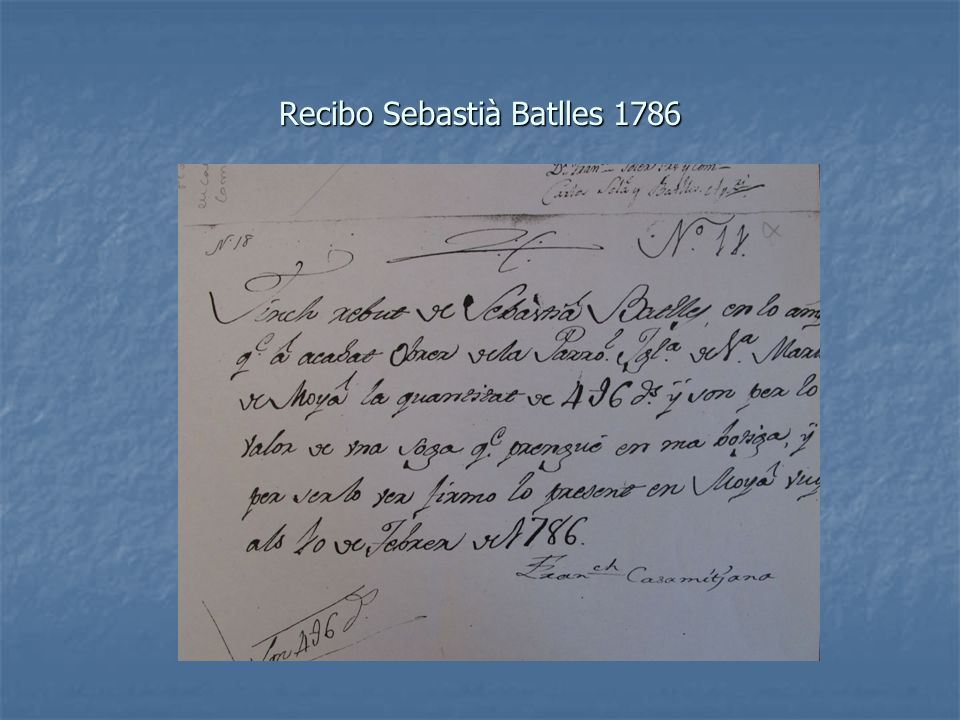 Recibo Sebastià Batlles 1786
Carlos Solà y Batlles
N. 18
Nº 18.
Tinch rebut de Sebastià Batlles, en lo añy
q.e à acabat Obrer de la Parro.l Igl.a de S.ta Mari
de Moyà la quantitat de 4 I 96 d.s ÿ son per lo
valor de vna soga q.e prengué en ma botiga, ÿ
per ser lo ver firmo lo present en Moyà vuy
als 10 de Febrer de 1786.
Fran.ch Casamitjana